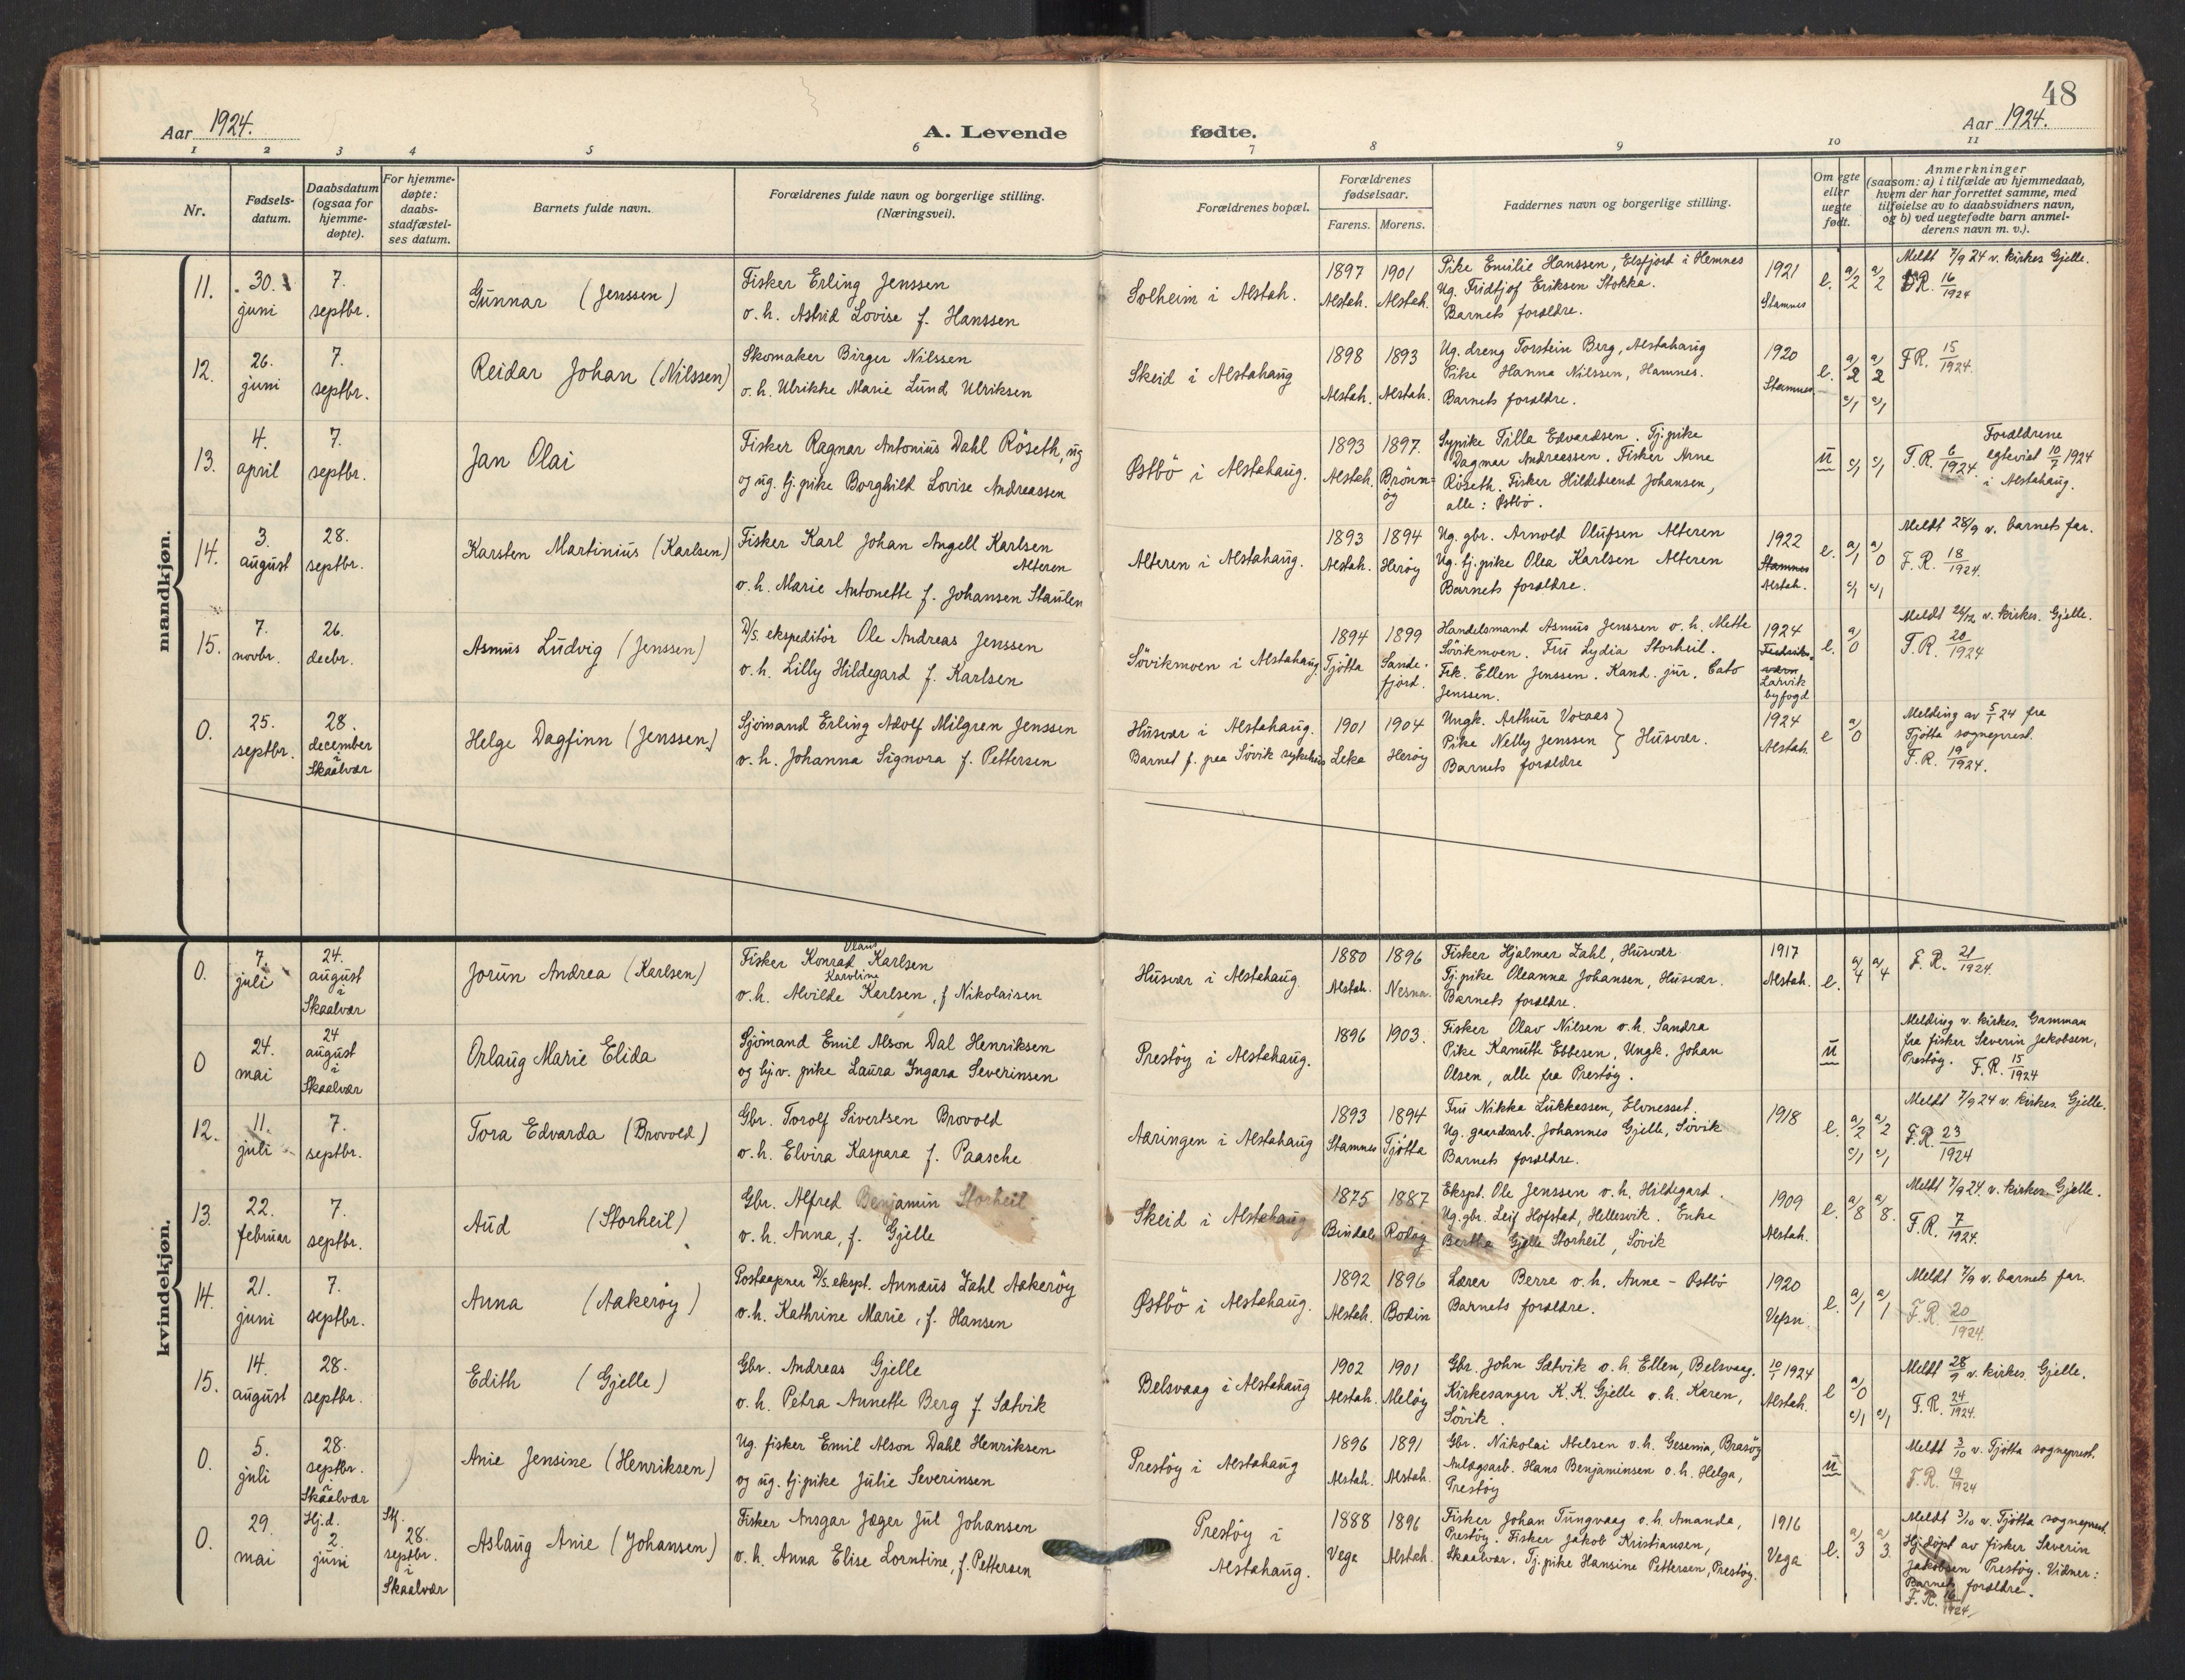 48
Aar 1924.
A. Levende fødte.
Aar 1924.
1 2 3 4 5 6 7 8 9 10 11
Nr.
Fødsels-
datum.
Daabsdatum
(ogsaa for
hjemme-
døpte).
For hjemme-
døpte:
daabs-
stadfæstel-
ses datum.
Barnets fulde navn.
Forældrenes fulde navn og borgerlige stilling.
(Næringsvei).
Forældrenes bopæl.
Forældrenes
fødselsaar.
Farens. Morens.
Faddernes navn og borgerlige stilling.
Om egte
eller
uegte
født.
Anmerkninger
(saasom: a) i tilfælde av hjemmedaab,
hvem der har forrettet samme, med
tilføielse av to daabsvidners navn,
og b) ved uegtefødte barn anmel-
derens navn m. v.).
mandkjøn.
11.
30.
juni
7.
septbr.
Gunnar (Jenssen)
Fisker Erling Jenssen
o.h. Astrid Lovise f. Hanssen
Solheim i Alstah.
1897
Alstah.
1901
Alstah.
Pike Emilie Hanssen, Elsfjord i Hemnes
Ug. Fridtjof Eriksen Stokka.
Barnets forældre.
1921
Stamnes
e. a/2 a/2
Meldt 7/9 24 v. kirkes Gjelle.
F.R. 16/1924
12.
26.
juni
7.
septbr.
Reidar Johan (Nilssen)
Skomaker Birger Nilssen
o.h. Ulrikke Marie Lund Ulriksen
Skeid i Alstahaug
1898
Alstah.
1893
Alstah.
Ug. dreng Torstein Berg, Alstahaug
Pike Hanna Nilssen, Hamnes.
Barnets forældre.
1920
Stamnes
e. a/2 a/2
c/1 c/1
F.R. 15/1924.
13.
4.
april
7.
septbr.
Jan Olai
Fisker Ragnar Antonius Dahl Röseth, ug
og ug. tj.pike Borghild Lovise Andreassen
Østbö i Alstahaug.
1893
Alstah.
1897.
Brönn=
öy
Sypike Tilla Edvardsen. Tj.pike
Dagmar Andreassen. Fisker Arne
Röseth. Fisker Hildebrend Johansen,
alle: Østbö.
u c/1 c/1
F.R. 6/1924.
Forældrene
egteviet 10/7 1924
i Alstahaug.
14.
3.
august
28.
septbr.
Karsten Martinius (Karlsen)
Fisker Karl Johan Angell Karlsen
Alteren
o.h. Marie Antonette f. Johansen Staulen
Alteren i Alstahaug.
1893
Alstah.
1894
Heröy
Ug. gbr. Arnold Olufsen Alteren
Ug. tj.pike Olea Karlsen Alteren
Barnets forældre.
1922
Stamnes
Alstah.
e. a/1 a/0
c/1 c/1
Meldt 28/9 v. barnets far.
F.R. 18/1924.
15.
7.
novbr.
26.
decbr.
Asmus Ludvig (Jenssen)
D/S. ekspeditör Ole Andreas Jenssen
o.h. Lilly Hildegard f. Karlsen
Sövikmoen i Alstahaug
1894
Tjötta
1899
Sande-
fjord.
Handelsmand Asmus Jenssen o.h. Mette
Sövikmoen. Fru Lydia Storheil.
Frk. Ellen Jenssen. Kand. jur. Cato
Jenssen.
1924
Fredriks-
værn
Larvik
byfogd
e. a/0
Meldt 26/12 v. kirkes. Gjelle.
F.R. 20/1924
0.
25.
septbr.
28.
december
i
Skaalvær
Helge Dagfinn (Jenssen)
Sjömand Erling Adolf Milgren Jenssen
o.h. Johanna Signora f. Pettersen
Husvær i Alstahaug.
Barnet f. paa Sövik sykehus
1901
Leka
1904
Heröy
Ungk. Arthur Voxaas
Pike Nelly Jenssen } Husvær.
Barnets forældre
1924
Alstah.
e a/0
Melding av 5/1 24 fra
Tjötta sogneprest.
F.R. 19/1924.
kvindekjøn.
0.
7.
juli
24.
august
i
Skaalvær
Jorun Andrea (Karlsen)
Olaus
Fisker Konrad Karlsen
Karoline
o.h. Alvilde Karlsen, f Nikolaisen
Husvær i Alstahaug
1880
Alstah.
1896
Nesna.
Fisker Hjalmar Zahl, Husvær
Tj.pike Oleanna Johansen, Husvær.
Barnets forældre.
1917
Alstah.
e. a/4 a/4
F.R. 21/1924.
0
24.
mai
24
august
i
Skaalvær
Orlaug Marie Elida
Sjömand Emil Alson Dal Henriksen
og hjv. pike Laura Ingara Severinsen
Prestöy i Alstahaug.
1896
1903.
Fisker Olav Nilsen o.h. Sandra
Pike Kanutte Ebbesen, Ungk. Johan
Olsen, alle fra Prestöy.
u
Melding v. kirkes. Gamman
fra fisker Severin Jakobsen,
Prestöy. F.R. 15/1924
12.
11.
juli
7.
septbr.
Tora Edvarda (Brovold)
Gbr. Torolf Sivertsen Brovold
o.h. Elvira Kaspara f. Paasche
Aaringen i Alstahaug
1893
Stamnes
1894
Tjötta
Fru Nikka Lukkassen, Elvnesset.
Ug. gaardsarb. Johannes Gjelle, Sövik
Barnets forældre.
1918
e. a/2 a/2
c/1 c/1
Meldt 7/9 24 v. kirkes. Gjelle.
F.R. 23/1924
13.
22.
februar
7.
septbr.
Aud (Storheil)
Gbr. Alfred Benjamin Storheil
o.h. Anna, f. Gjelle
Skeid i Alstahaug
1875
Bindal
1887
Rodøy
Ekspt. Ole Jenssen o.h. Hildegard.
Ug. gbr. Leif Hofstad, Hellesvik. Enke
Bertha Gjelle Storheil, Sövik
1909
Alstah.
e. a/8 a/8.
Meldt 7/9 24. v. kirkes. Gjelle.
F.R. 7/1924.
14.
21.
juni
7.
septbr.
Anna (Aakeröy)
Postaapner D/S. ekspt. Annæus Zahl Aakeröy
o.h. Kathrine Marie, f. Hansen
Østbö i Alstahaug.
1892
Alstah.
1896
Bodin
Lærer Berre o.h. Anne - Østbö
Barnets forældre.
1920
Vefsn.
e. a/1 a/1
Meldt 7/9 v. barnets far.
F.R. 20/1924.
15.
14.
august
28.
septbr.
Edith (Gjelle)
Gbr. Andreas Gjelle
o.h. Petra Annette Berg f. Sætvik
Belsvaag i Alstahaug
1902
Alstah.
1901
Melöy
Gbr. John Sætvik o.h. Ellen, Belsvaag.
Kirkesanger K.K. Gjelle o.h. Karen,
Sövik.
10/1 1924
Alstah.
e a/0
c/1 c/1
Meldt 28/9 v. kirkes. Gjelle.
F.R. 24/1924.
0.
5.
juli
28.
septbr.
i
Skaalvær
Anie Jensine (Henriksen)
Ug. fisker Emil Alson Dahl Henriksen
og ug. tj.pike Julie Severinsen
Prestöy i Alstahaug
1896
Alstah.
1891
Alstah.
Gbr. Nikolai Abelsen o.h. Gesenia, Brasöy
Anlægsarb. Hans Benjaminsen o.h. Helga,
Prestöy
u
Meldt 3/10 v. Tjötta sogneprest.
F.R. 19/1924
0.
29.
mai
Hj.d.
2.
juni
Stf.
28.
septbr.
i
Skaalvær
Aslaug Anie (Johansen)
Fisker Ansgar Jæger Jul Johansen
o.h. Anna Elise Lorntine, f. Pettersen
Prestöy i
Alstahaug.
1888
Vega
1896
Alstah.
Fisker Johan Tungvaag o.h. Amanda,
Prestöy. Fisker Jakob Kristiansen,
Skaalvær. Tj.pike Hansine Pettersen, Prestöy.
1916
Vega
e. a/3 a/3
Meldt 3/10 v. Tjötta sogneprest.
Hj.döpt av fisker Severin
Jakobsen Prestöy. Vidner:
Barnets forældre.
F.R. 16/1924